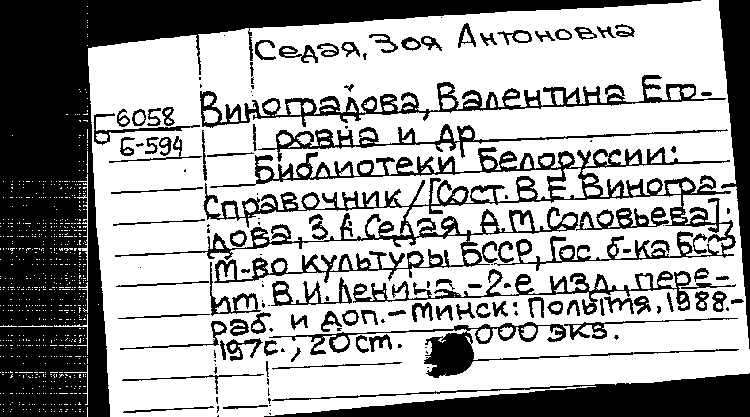 Седая, Зоя Антоновна
Б 6058
Б-594
Виноградова, Валентина Его-
ровна и др.
Библиотеки Белоруссии:
Справочник / [Сост. В.Е. Виногра-
дова, З.А. Седая, А.М. Соловьева];
М-во культуры БССР, Гос. б-ка БССР
им. В.И. Ленина. - 2-е изд., пере-
раб. и доп. - Минск: Полымя, 1988. -
197с.; 20 ст. 3000 экз.